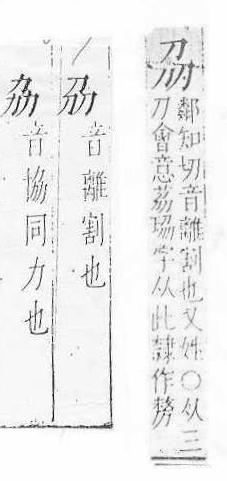 刕
鄰知切音離割也又姓○从三
刀會意荔珕字从此隸作
刕音離割也
劦音協同力也